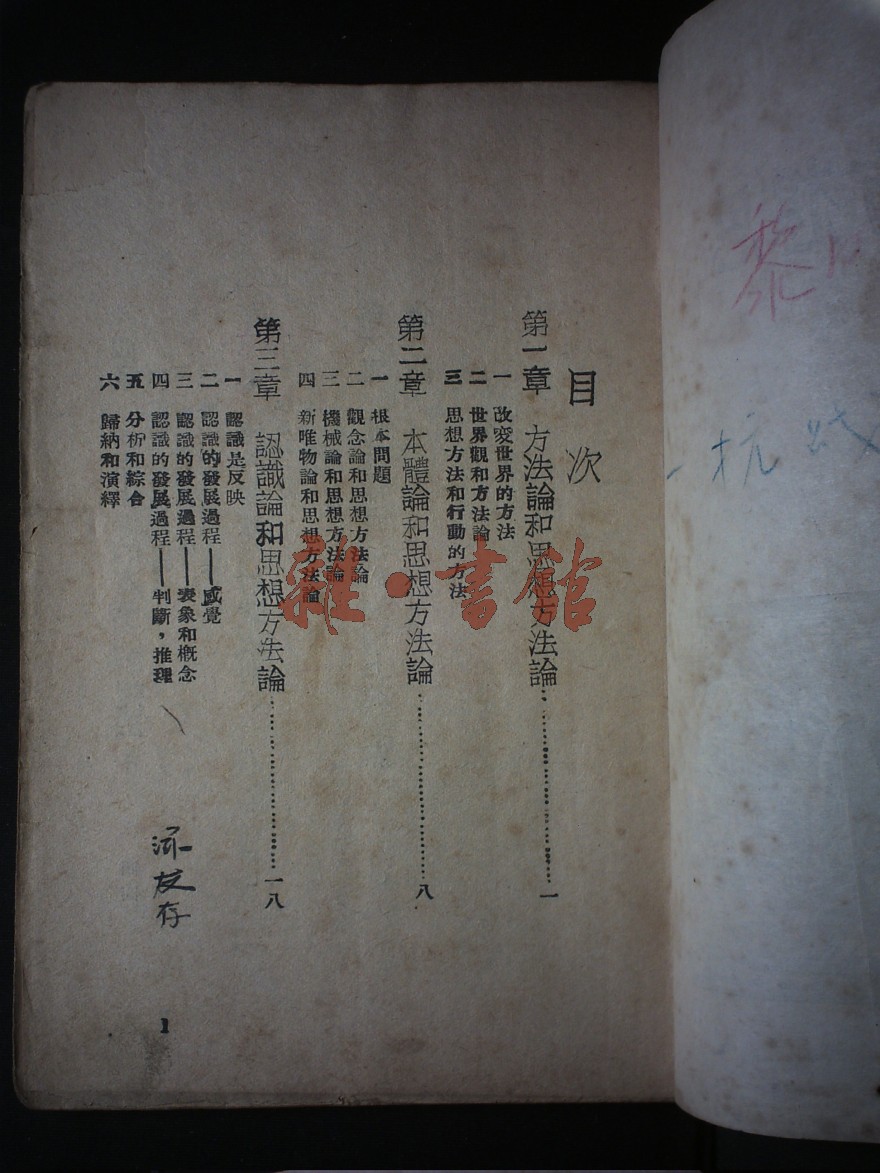 目次
第一章 方法論和思想方法論……一
一 改變世界的方法
二 世界觀和方法論
三 思想方法和行動的方法
第二章 本體論和思想方法論……八
一 根本問題
二 觀念論和思想方法論
三 機械論和思想方法論
四 新唯物論和思想方法論
第三章 認識論和思想方法論……一八
一 認識是反映
二 認識的發展過程——感覺
三 認識的發展過程——表象和概念
四 認識的發展過程——判斷，推理
五 分析和綜合
六 歸納和演繹
友存
1
雜·書館
黎
抗